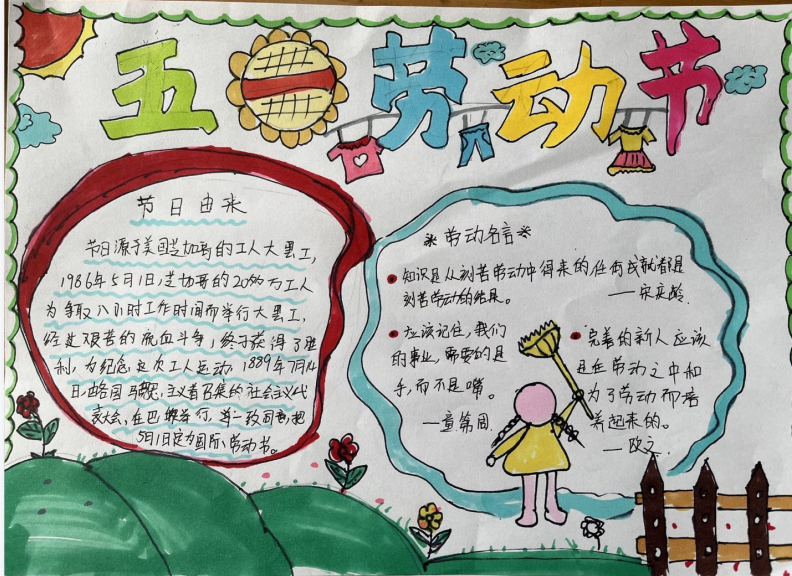 五一劳动节
节日由来
节日源于美国芝加哥的工人大罢工,
1986年5月1日,芝加哥的20多万工人
为争取八小时工作时间而举行大罢工,
经过艰苦的流血斗争,终于获得了胜
利,为纪念这次工人运动,1889年7月14
日,由各国马克思主义者召集的社会主义代
表大会,在巴黎举行,并一致同意,把
5月1日定为国际劳动节。
*劳动名言*
知识是从刻苦劳动中得来的任何成就都是
刻苦劳动的结果。
——宋庆龄
应该记住,我们
的事业,需要的是
手,而不是嘴。
—童第周
完善的新人应该
是在劳动之中和
为了劳动而培
养起来的。
—欧文